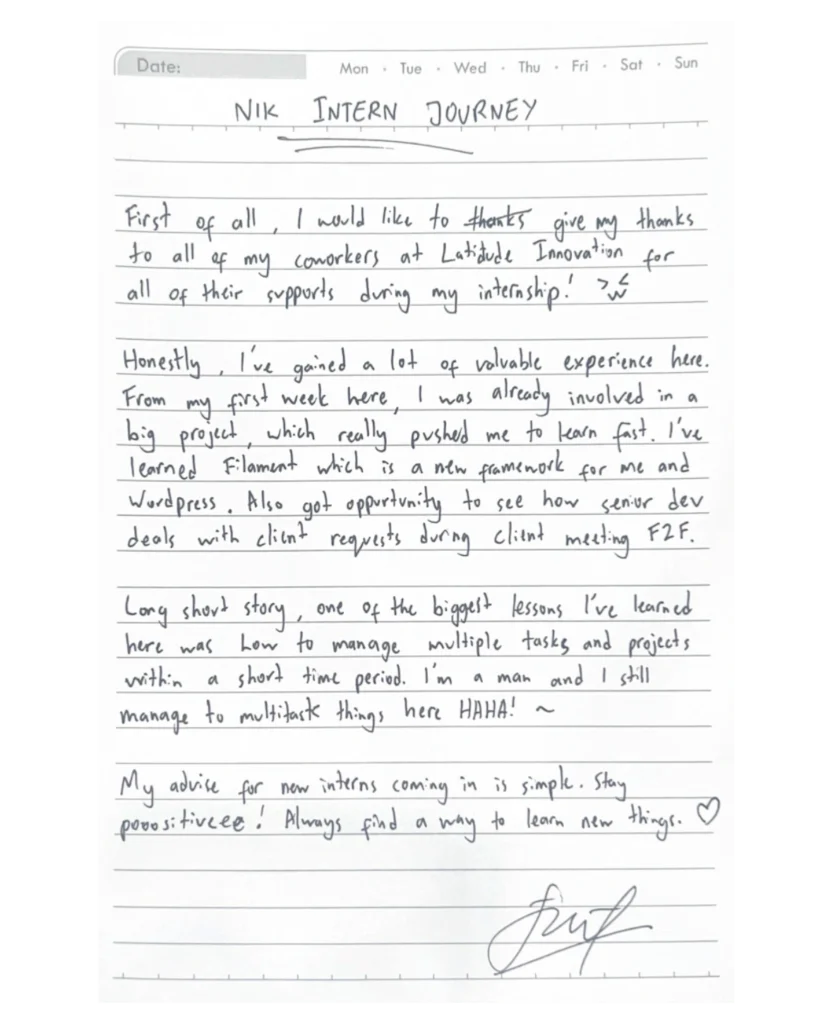 Date:
Mon · Tue · Wed · Thu · Fri · Sat · Sun
NIK INTERN JOURNEY
First of all, I would like to thanks give my thanks
to all of my coworkers at Latidude Innovation for
all of their supports during my internship! >w<
Honestly, I've gained a lot of valuable experience here.
From my first week here, I was already involved in a
big project, which really pushed me to learn fast. I've
learned Filament which is a new framework for me and
Wordpress. Also got opportunity to see how senior dev
deals with client requests during client meeting F2F.
Long short story, one of the biggest lessons I've learned
here was how to manage multiple tasks and projects
within a short time period. I'm a man and I still
manage to multitask things here HAHA! ~
My advise for new interns coming in is simple. Stay
pooositiveee! Always find a way to learn new things. ♡